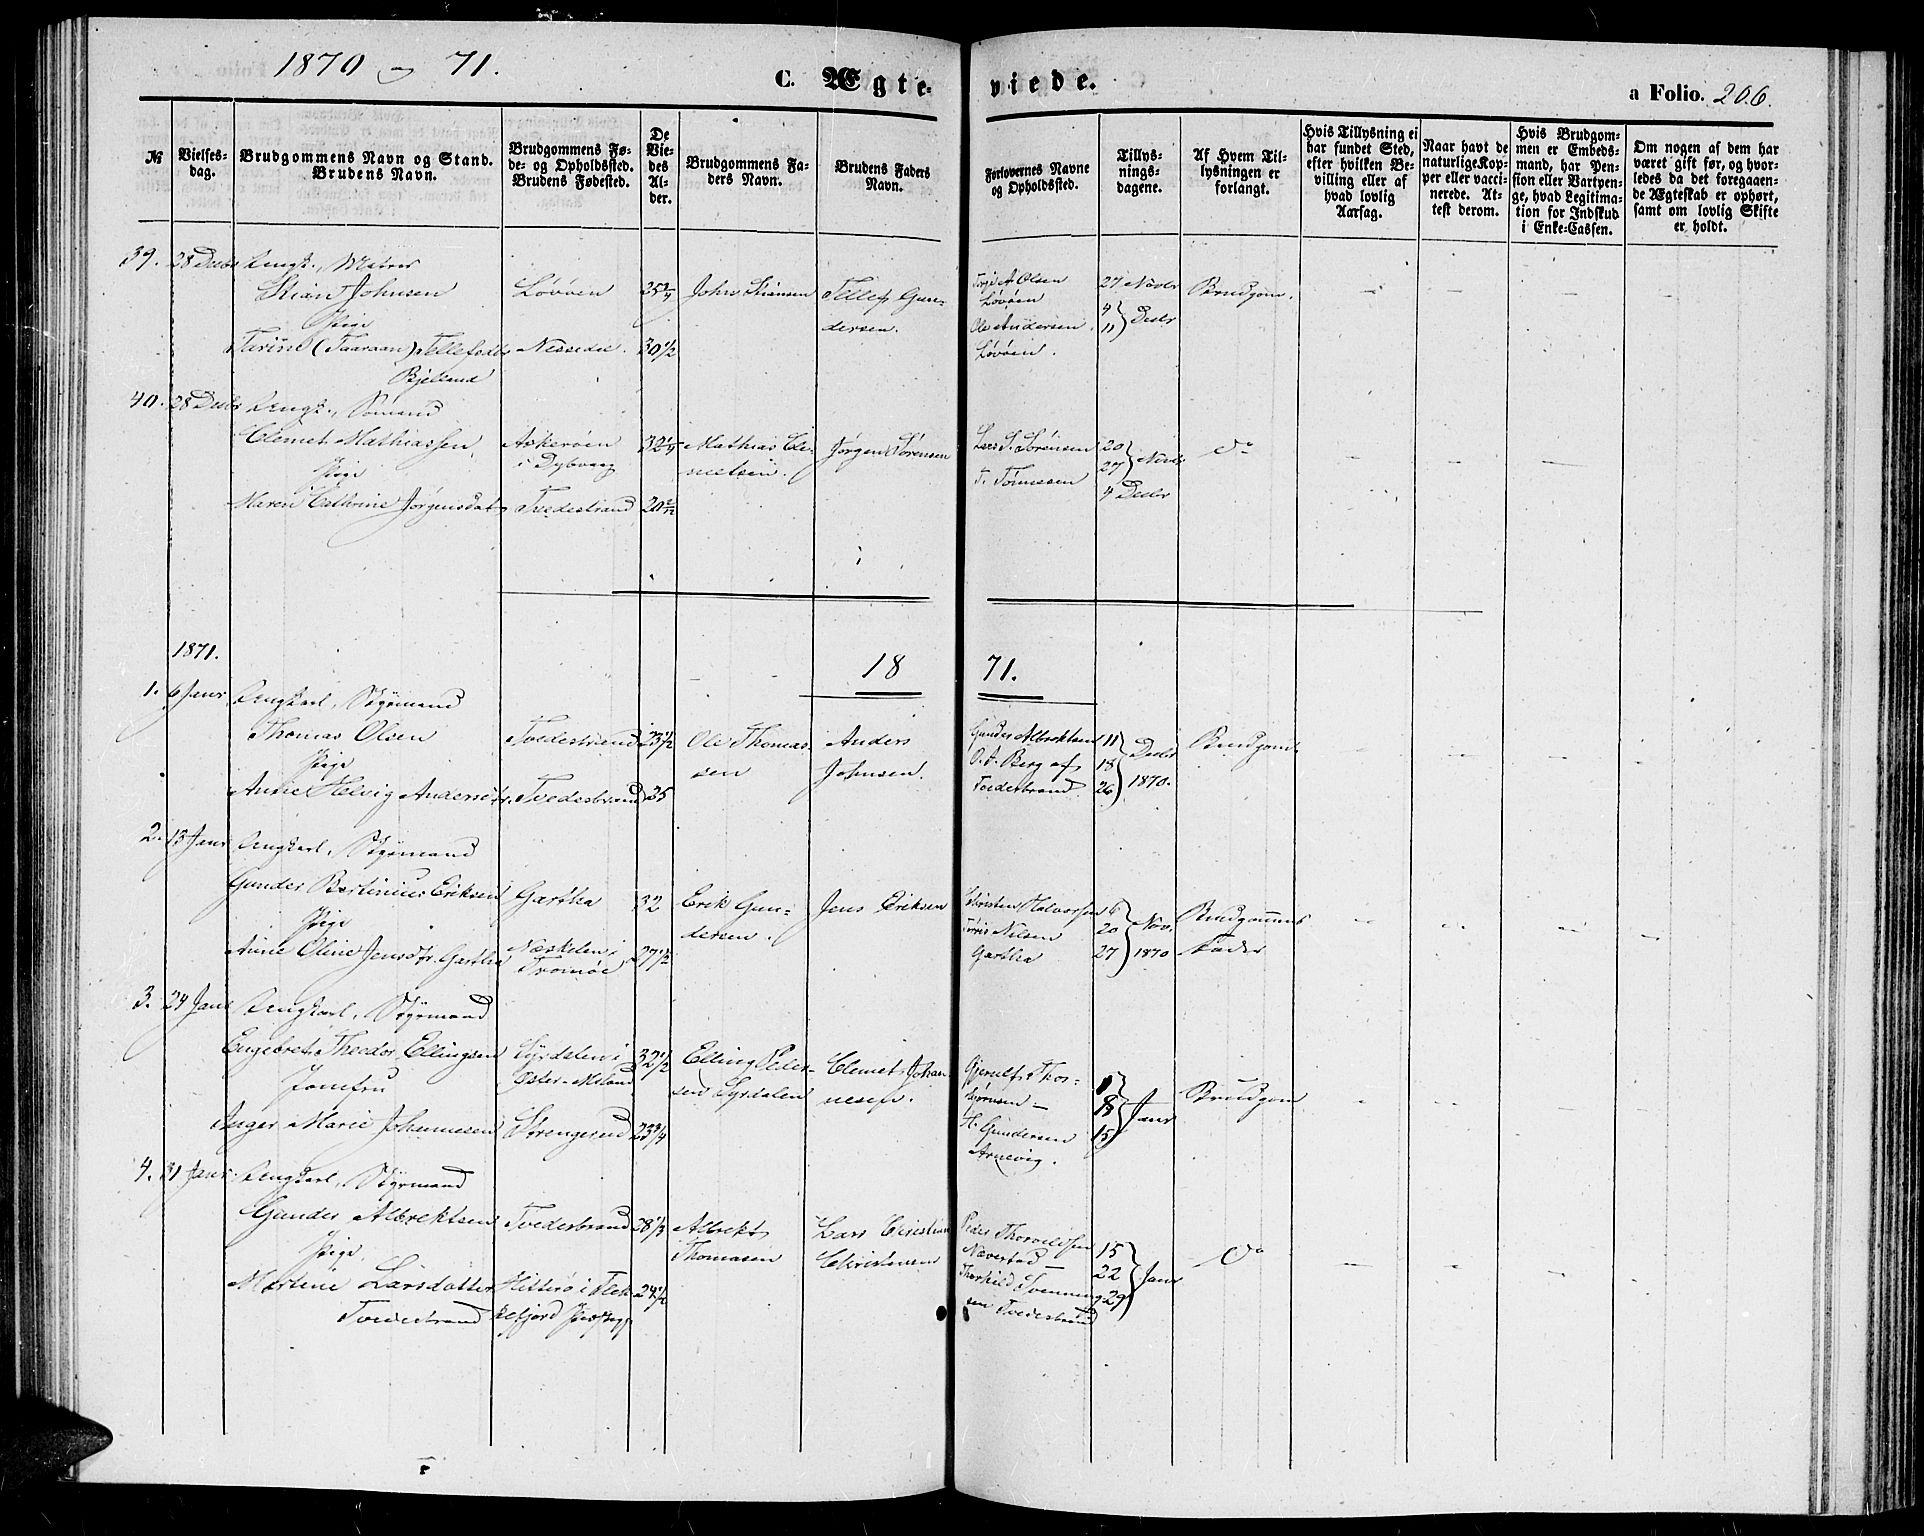 1870 - 71.
C. Ægteviede.
a Folio. 206.
№
Vielsesdag.
Brudgommens Navn og Stand.
Brudens Navn.
Brudgommens Føde- og Opholdssted.
Brudens Fødested.
De Viedes Alder.
Brudgommens Faders Navn.
Brudens Faders Navn.
Forlovernes Navne og Opholdssted.
Tillysningsdagene.
Af Hvem Tillysningen er forlangt.
Hvis Tillysning ei har fundet Sted, efter hvilken Bevilling eller af hvad lovlig Aarsag.
Naar havt de naturlige Kopper eller vaccinerede. Attest derom.
Hvis Brudgommen er Embedsmand, har Pension eller Vartpenge, hvad Legitimation for Indskud i Enke-Cassen.
Om nogen af dem har været gift før, og hvorledes da det foregaaende Ægteskab er ophørt, samt om lovlig Skifte er holdt.
39. 28 Decbr Ungk., Matros
Johnsen Løvøen John Tellef Gundersen. Olsen Løvøen 27 Novbr Brudgom.
Pige
Terine (Taaraan) Tellefsdtr Nessedie. 30 1/2 Ole Andersen Løvøen. 4 11 } Decbr
Bjelland
40. 28 Decbr Ungk., Sømand
Clemet Mathiassen, Askerøen i Dybvaag 32 1/4 Mathias Clemetsen. Jørgen Sørensen Lars S. Sørensen 20 27 } Novbr Do
Pige
Maren Cathrine Jørgensdat Tvedestrand 20 T. Tønnesen 4 Decbr
1871.
18 71.
1. 6 Janr Ungkarl, Styrmand
Thomas Olsen Tvedestrand 23 1/2 Ole Thomassen Anders Johnsen. Gunder Albrektsen 11 18 26 } Decbr 1870. Brudgom
Pige
Anne Helvig Andersdtr. Tvedestrand 25 O. A. Berg af Tvedestrand
2. 13 Janr Ungkarl, Styrmand
Gunder Bertinius Eriksen Gartha 32 Erik Gundersen. Jens Eriksen Christen Halvorsen 6 20 27 } Nov. 1870 Brudgommens Fader
Pige
Anne Oline Jensdtr. Gartha Næskelen i Tromøe 27 1/2 Nilsen Gartha
3. 24 Janr Ungkarl, Styrmand
Engebret Theodor Ellingsen Lyrdalen i Øster-Moland 32 1/2 Elling Pedersen Lyrdalen Clemet Johannesen. Gjerulf Thorbjørnsen - 1 8 15 } Janr Brudgom
Jomfru
Inger Marie Johannesen Strengereid 23 3/4 H. Gundersen Arnevig.
4. 31 Janr Ungkarl, Styrmand
Gunder Albrektsen Tvedestrand 28 1/3 Albrekt Thomasen Lars Christian Christensen Peder Thorvildsen Næverstad - 15 22 29 } Janr Do
Pige.
Martine Larsdatter Hitterø i Flekkefjord Præstegj 24 1/2 Therkild Svenningsen Tvedestrand
Tvedestrand